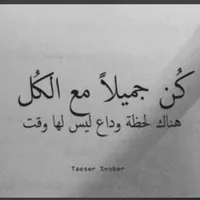 كُن جميلاً مع الكُل
هناك لحظة وداع ليس لها وقت
Taeser Inobar